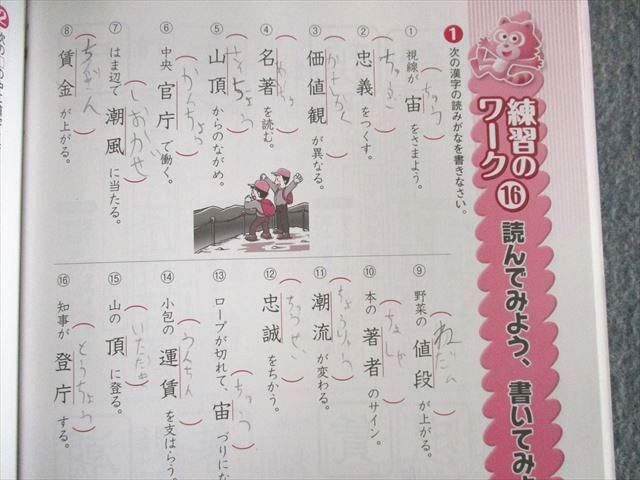 練習のワーク⑯
読んでみよう、書いてみよ
1 次の漢字の読みがなを書きなさい。
① 視線が宙をさまよう。
ちゅう
② 忠義をつくす。
ちゅうぎ
③ 価値観が異なる。
かちかん
④ 名著を読む。
めいちょ
⑤ 山頂からのながめ。
さんちょう
⑥ 中央官庁で働く。
かんちょう
⑦ はま辺で潮風に当たる。
しおかぜ
⑧ 賃金が上がる。
ちんぎん
⑨ 野菜の値段が上がる。
ねだん
⑩ 本の著者のサイン。
ちょしゃ
⑪ 潮流が変わる。
ちょうりゅう
⑫ 忠誠をちかう。
ちゅうせい
⑬ ロープが切れて、宙づりにな
ちゅう
⑭ 小包の運賃を支はらう。
うんちん
⑮ 山の頂に登る。
いただき
⑯ 知事が登庁する。
とうちょう